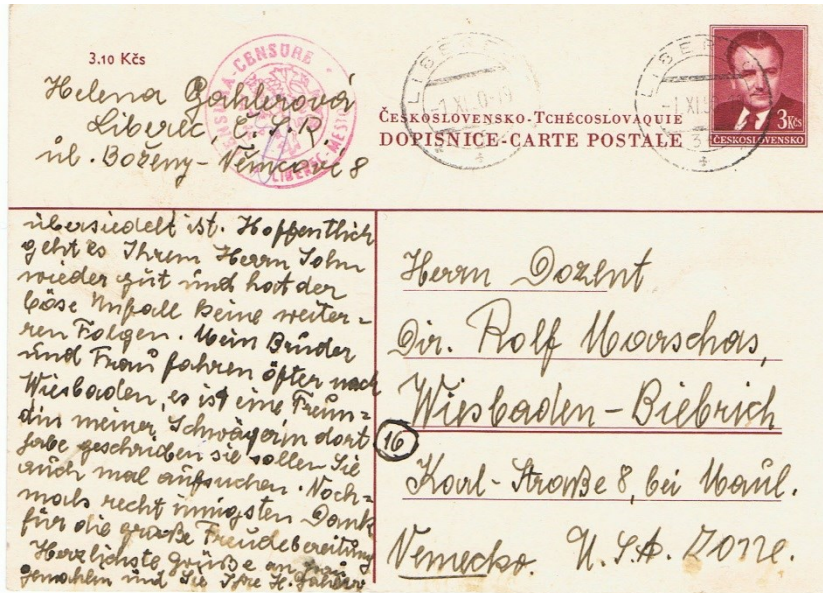 3.10 Kčs
CENSURE
Helena Gahlerová
Liberec, Č.S.R.
ul. Boženy-Němcové 8
LIBEREC
ČESKOSLOVENSKO-TCHÉCOSLOVAQUIE
DOPISNICE-CARTE POSTALE
3 Kčs
ČESKOSLOVENSKO
übersiedelt ist. Hoffentlich
geht es Ihrem Herrn Sohn
wieder gut und hat der
böse Unfall keine weiter=
ren Folgen. Mein Bruder
und Frau fahren öfter nach
Wiesbaden, es ist eine Freun=
din meiner Schwägerin dort
habe geschrieben sie sollen Sie
auch mal aufsuchen. Noch=
mals recht innigsten Dank
für die große Freudebereitung
Herzlichste Grüße an Frau
Gemahlin und Sie Ihre H. Gahler
Herrn Dozent
Dir. Rolf Marschas,
Wiesbaden-Biebrich
16
Karl-Straße 8, bei Maul.
Německo. U.S.A. Zone.